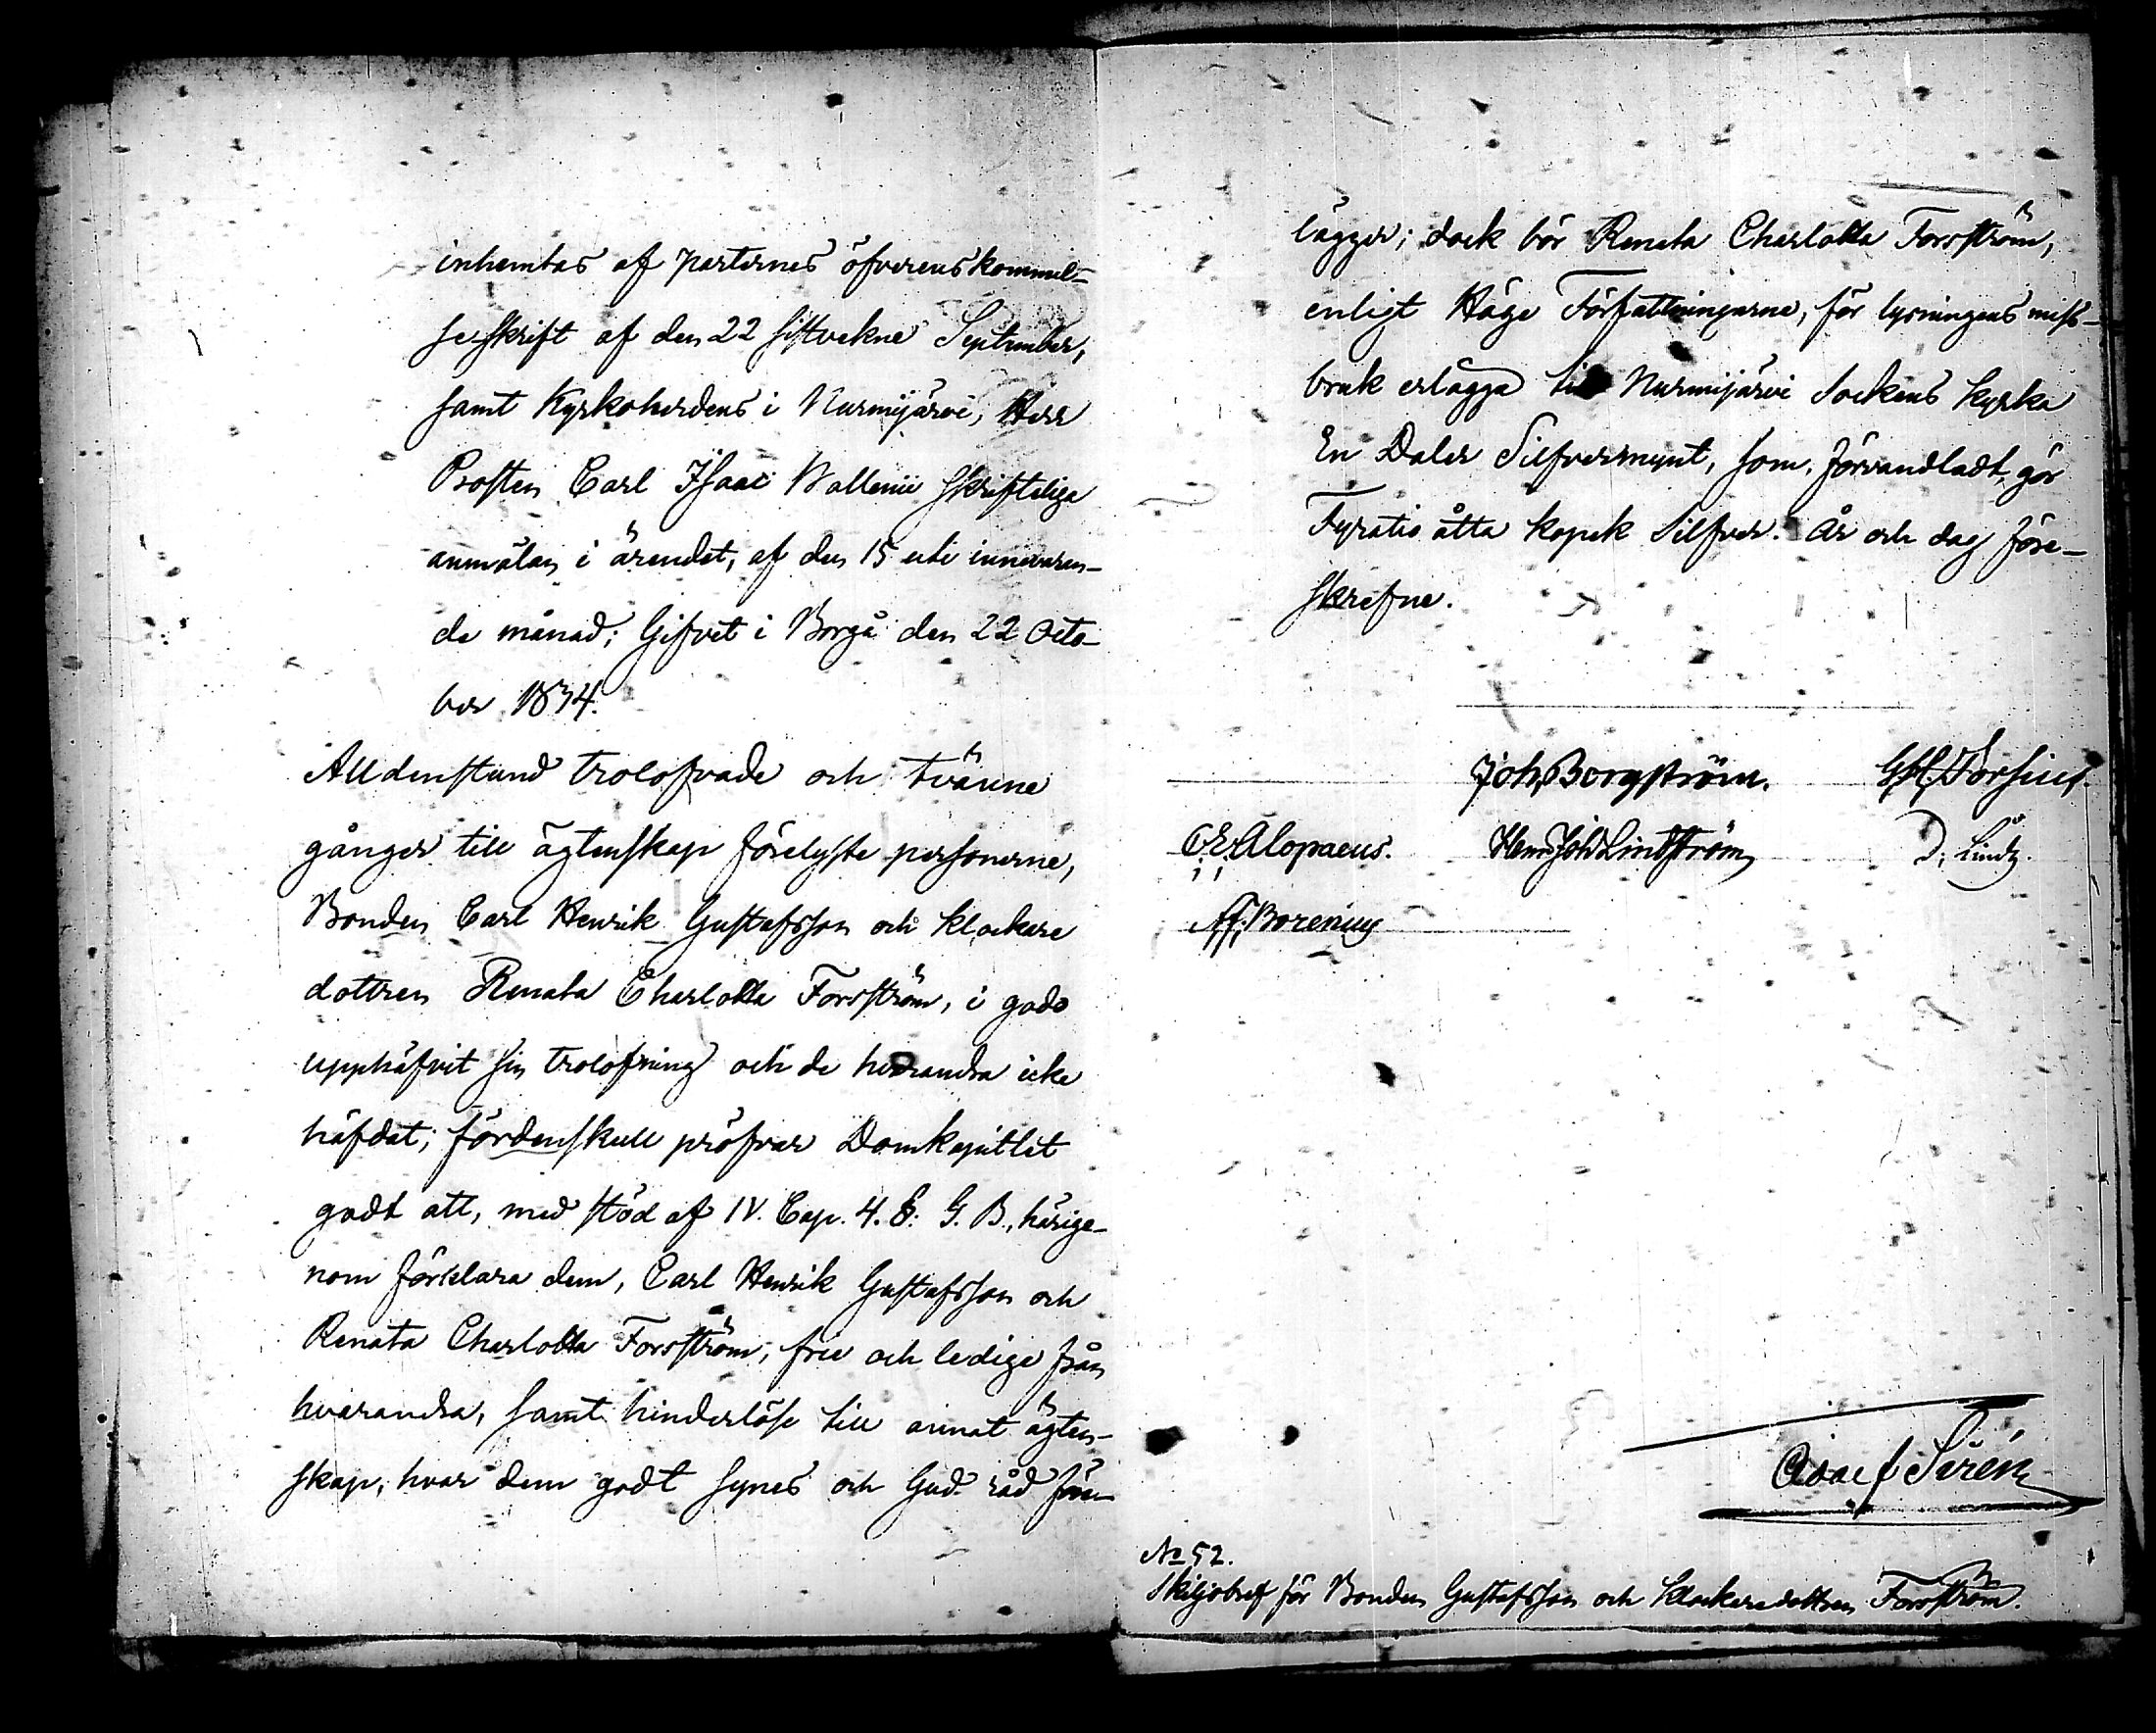 inhemtas af parternes öfverenskommel-
seskrift af den 22 sistvekne September,
samt Kyrkoherdens i Nurmijärvi, Herr
Prosten Carl Isaac Wallenii skrifteliga
anmälan i ärendet, af den 15 uti innevaran-
de månad; Gifvet i Borgå den 22 Octo-
ber 1834.
Alldenstund trolofvade och tvänne
gånger till ägtenskap förelyste personerne,
Bonden Carl Henrik Gustafsson och klockare
dottren Renata Charlotta Forsström, i godo
upphäfvit sin trolofning och de hvarandra icke
häfdat; fördenskull pröfvar Domkapitlet
godt att, med stöd af IV. Cap. 4. §. G. B., härige-
nom förklara dem, Carl Henrik Gustafsson och
Renata Charlotta Forsström, frie och ledige från
hvarandra, samt hinderlöse till annat ägten-
skap, hvar dem godt synes och Gud råd före-
lägger; dock bör Renata Charlotta Forsström,
enligt Höga Författningarne, för lysningens miss-
bruk erlägga till Nurmijärvi Sockens kyrka
En Daler Silfvermynt, som, förvandladt, gör
Fyratio åtta kopek Silfver. År och dag före-
skrefne.
Joh. Borgström. Forsius.
C. E. Alopaeus. Henr. Joh. Lindström D. Lindh.
Af. Borenius
Adolf Sirén
No 52.
Skiljobref för Bonden Gustafsson och klockaredottren Forsström.